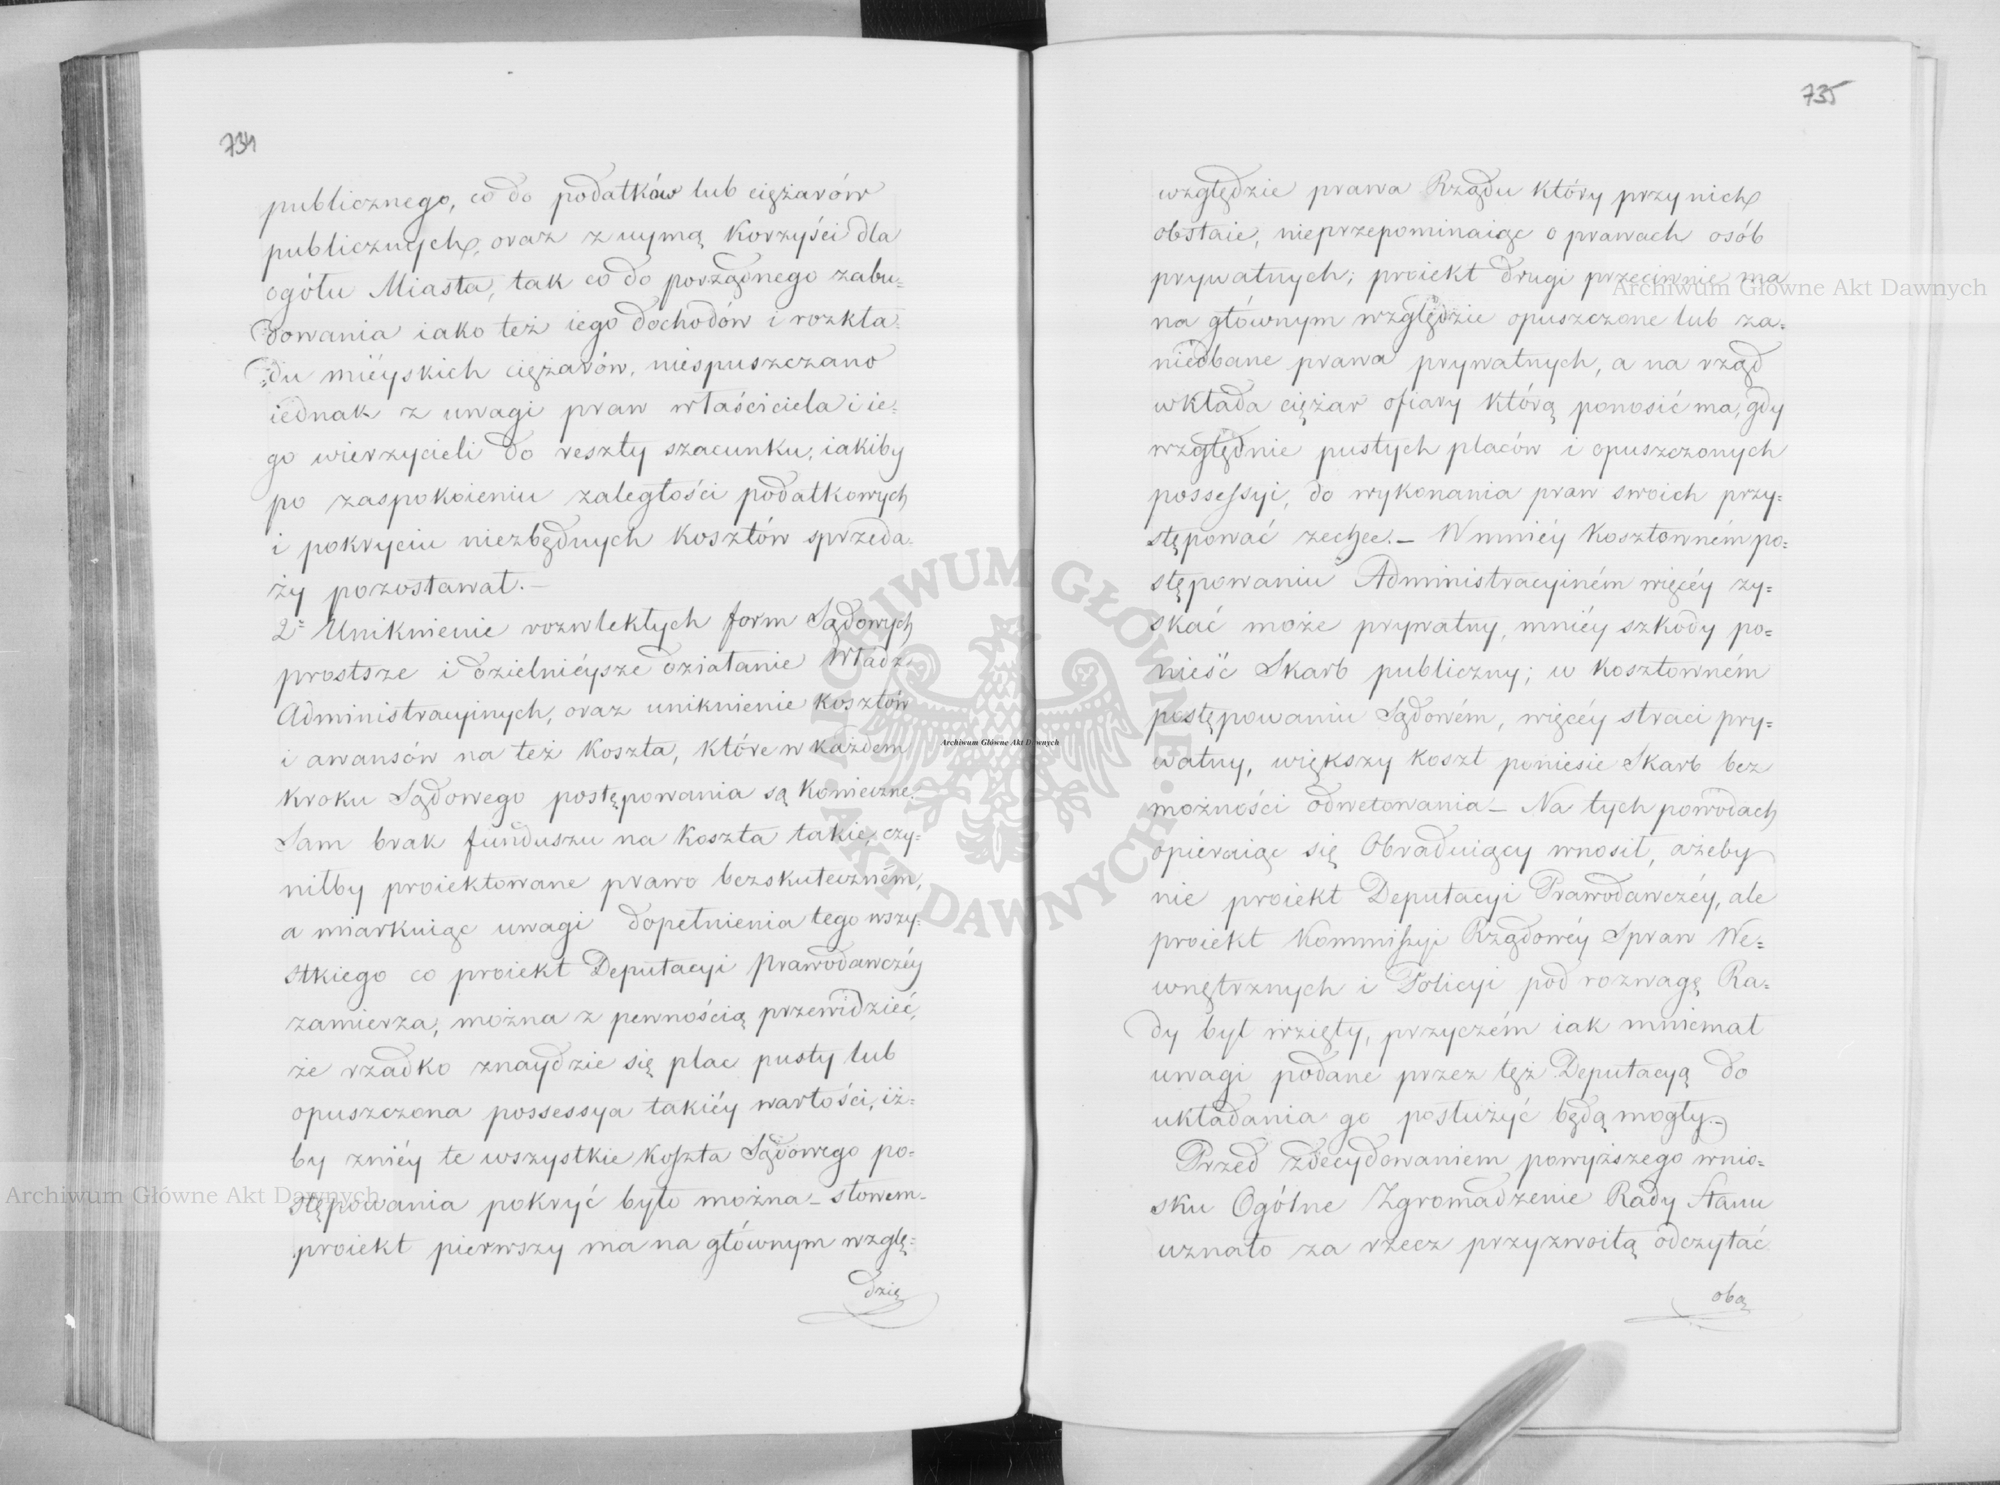 734
publicznego, co do podatków lub ciężarów
publicznych, oraz z uymą korzyści dla
ogółu Miasta, tak co do porządnego zabu=
dowania iako też iego dochodów i rozkła=
=du miéyskich ciężarów, niespuszczano
iednak z uwagi praw właściciela i ie=
go wierzycieli do reszty szacunku, iakiby
po zaspokoieniu zaległości podatkowych
i pokryciu niezbędnych kosztów sprzeda=
ży pozostawał.—
2= Uniknienie rozwlekłych form Sądowych
prostsze i dzielnieysze działanie Władz
Administracyinych, oraz uniknienie kosztów
i awansów na też koszta, które w każdem
kroku Sądowego postępowania są konieczne.
Sam brak funduszu na koszta takie, czy=
niłby proiektowane prawo bezskuteczném,
a miarkuiąc uwagi dopełnienia tego wszy=
stkiego co proiekt Deputacyi Prawodawczéy
zamierza, można z pewnością przewidzieć,
że rzadko znaydzie się plac pusty lub
opuszczona possessya takiéy wartości, iż=
by zniéy te wszystkie koszta Sądowego po=
stępowania pokryć było można — słowem
proiekt pierwszy ma na głównym wzglę=
dzie
735
względzie prawa Rządu który przy nich
obstaie, nieprzepominaiąc o prawach osób
prywatnych; proiekt drugi przeciwnie ma
na głównym względzie opuszczone lub za=
niedbane prawa prywatnych, a na rząd
wkłada ciężar ofiary którą ponosić ma, gdy
względnie pustych placów i opuszczonych
possessyi, do wykonania praw swoich przy=
stępować zechce.— W mniéy kosztowném po=
stępowaniu Administracyiném więcéy zy=
skać może prywatny, mniéy szkody po=
nieść Skarb publiczny; w kosztowném
postępowaniu Sądowém, więcéy straci pry=
watny, większy koszt poniesie Skarb bez
możności odwetowania — Na tych powodach
opieraiąc się Obraduiący wnosił, ażeby
nie proiekt Deputacyi Prawodawczéy, ale
proiekt Kommissyi Rządowéy Spraw We=
wnętrznych i Policyi pod rozwagę Ra=
dy był wzięty, przyczém iak mniemał
uwagi podane przez tęż Deputacyą do
układania go posłużyć będą mogły.—
Przed zdecydowaniem powyższego wnio=
sku Ogólne Zgromadzenie Rady Stanu
uznało za rzecz przyzwoitą odczytać
oba
Archiwum Główne Akt Dawnych
Archiwum Główne Akt Dawnych
Archiwum Główne Akt Dawnych
ARCHIWUM GŁÓWNE AKT DAWNYCH